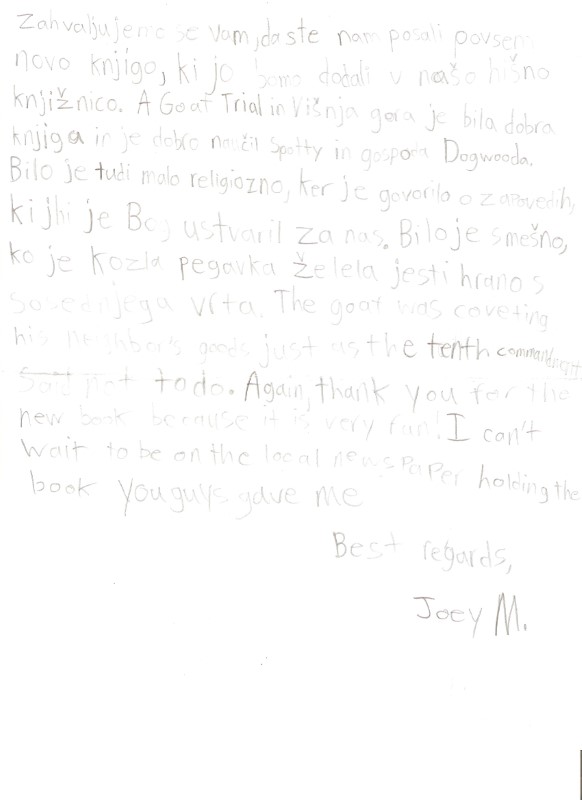 Zahvaljujemo se vam, da ste nam posali povsem
novo knjigo, ki jo bomo dodali v našo hišno
knjižnico. A Goat Trial in Višnja gora je bila dobra
knjiga in je dobro naučil Spotty in gospoda Dogwooda.
Bilo je tudi malo religiozno, ker je govorilo o zapovedih,
ki jhi je Bog ustvaril za nas. Bilo je smešno,
ko je kozla pegavka želela jesti hrano s
sosednjega vrta. The goat was coveting
his neighbor's goods just as the tenth commandment
said not to do. Again, thank you for the
new book because it is very fun! I can't
wait to be on the local newspaper holding the
book you guys gave me
Best regards,
Joey M.